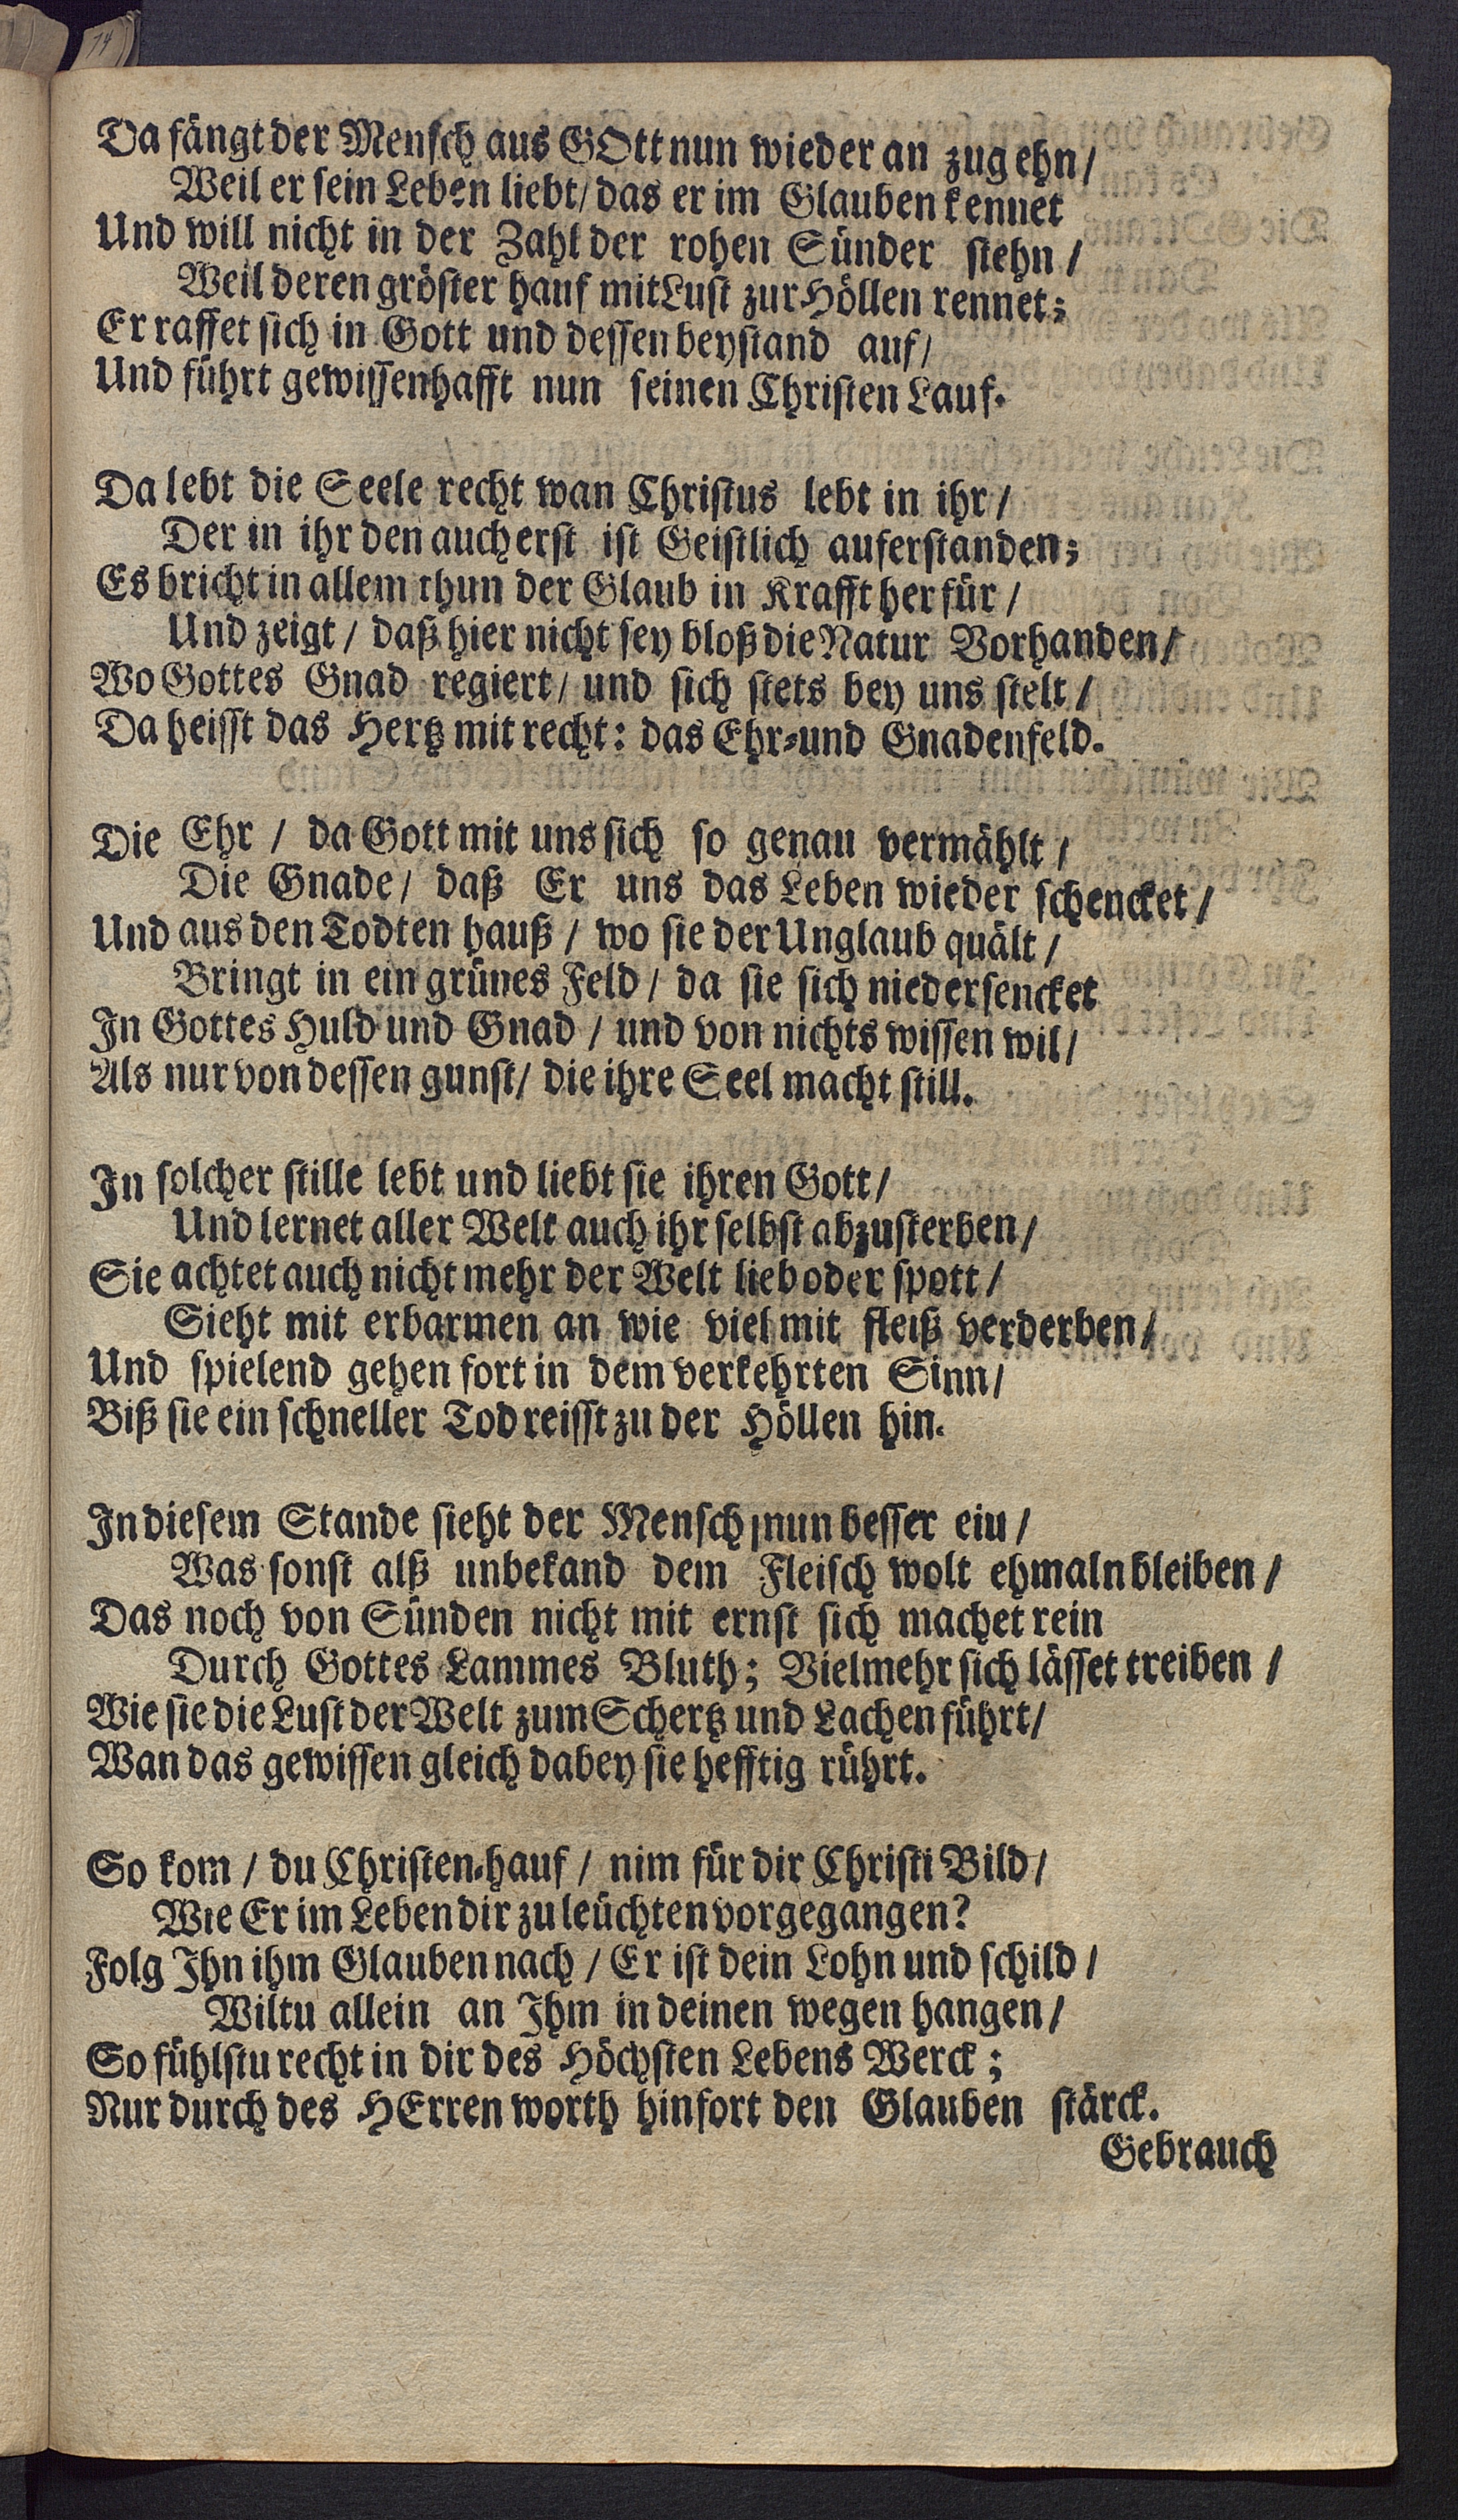 74
Da fängt der Mensch aus GOtt nun wieder an zug ehn/
Weil er sein Leben liebt/ das er im Glauben kennet
Und will nicht in der Zahl der rohen Sünder stehn /
Weil deren gröster hauf mit Lust zur Höllen rennet;
Er raffet sich in Gott und dessen beystand auf/
Und führt gewissenhafft nun seinen Christen Lauf.
Da lebt die Seele recht wan Christus lebt in ihr /
Der in ihr den auch erst ist Geistlich auferstanden;
Es bricht in allem thun der Glaub in Krafft herfür /
Und zeigt / daß hier nicht sey bloß die Natur Vorhanden/
Wo Gottes Gnad regiert/ und sich stets bey uns stelt /
Da heisst das Hertz mit recht: das Ehr-und Gnadenfeld.
Die Ehr / da Gott mit uns sich so genau vermählt /
Die Gnade/ daß Er uns das Leben wieder schencket /
Und aus den Todten hauß / wo sie der Unglaub quält /
Bringt in ein grünes Feld / da sie sich niedersencket
In Gottes Huld und Gnad / und von nichts wissen wil/
Als nur von dessen gunst/ die ihre Seel macht still.
In solcher stille lebt und liebt sie ihren Gott/
Und lernet aller Welt auch ihr selbst abzusterben/
Sie achtet auch nicht mehr der Welt lieb oder spott /
Sieht mit erbarmen an wie viel mit fleiß verderben/
Und spielend gehen fort in dem verkehrten Sinn/
Biß sie ein schneller Tod reisst zu der Höllen hin.
In diesem Stande sieht der Mensch nun besser eiu /
Was sonst alß unbekand dem Fleisch wolt ehmaln bleiben /
Das noch von Sünden nicht mit ernst sich machet rein
Durch Gottes Lammes Bluth; Vielmehr sich lässet treiben /
Wie sie die Lust der Welt zum Schertz und Lachen führt/
Wan das gewissen gleich dabey sie hefftig rührt.
So kom / du Christen-hauf / nim für dir Christi Bild/
Wie Er im Leben dir zu leüchten vorgegangen?
Folg Ihn ihm Glauben nach / Er ist dein Lohn und schild /
Wiltu allein an Ihm in deinen wegen hangen/
So fühlstu recht in dir des Höchsten Lebens Werck;
Nur durch des HErren worth hinfort den Glauben stärck.
Gebrauch